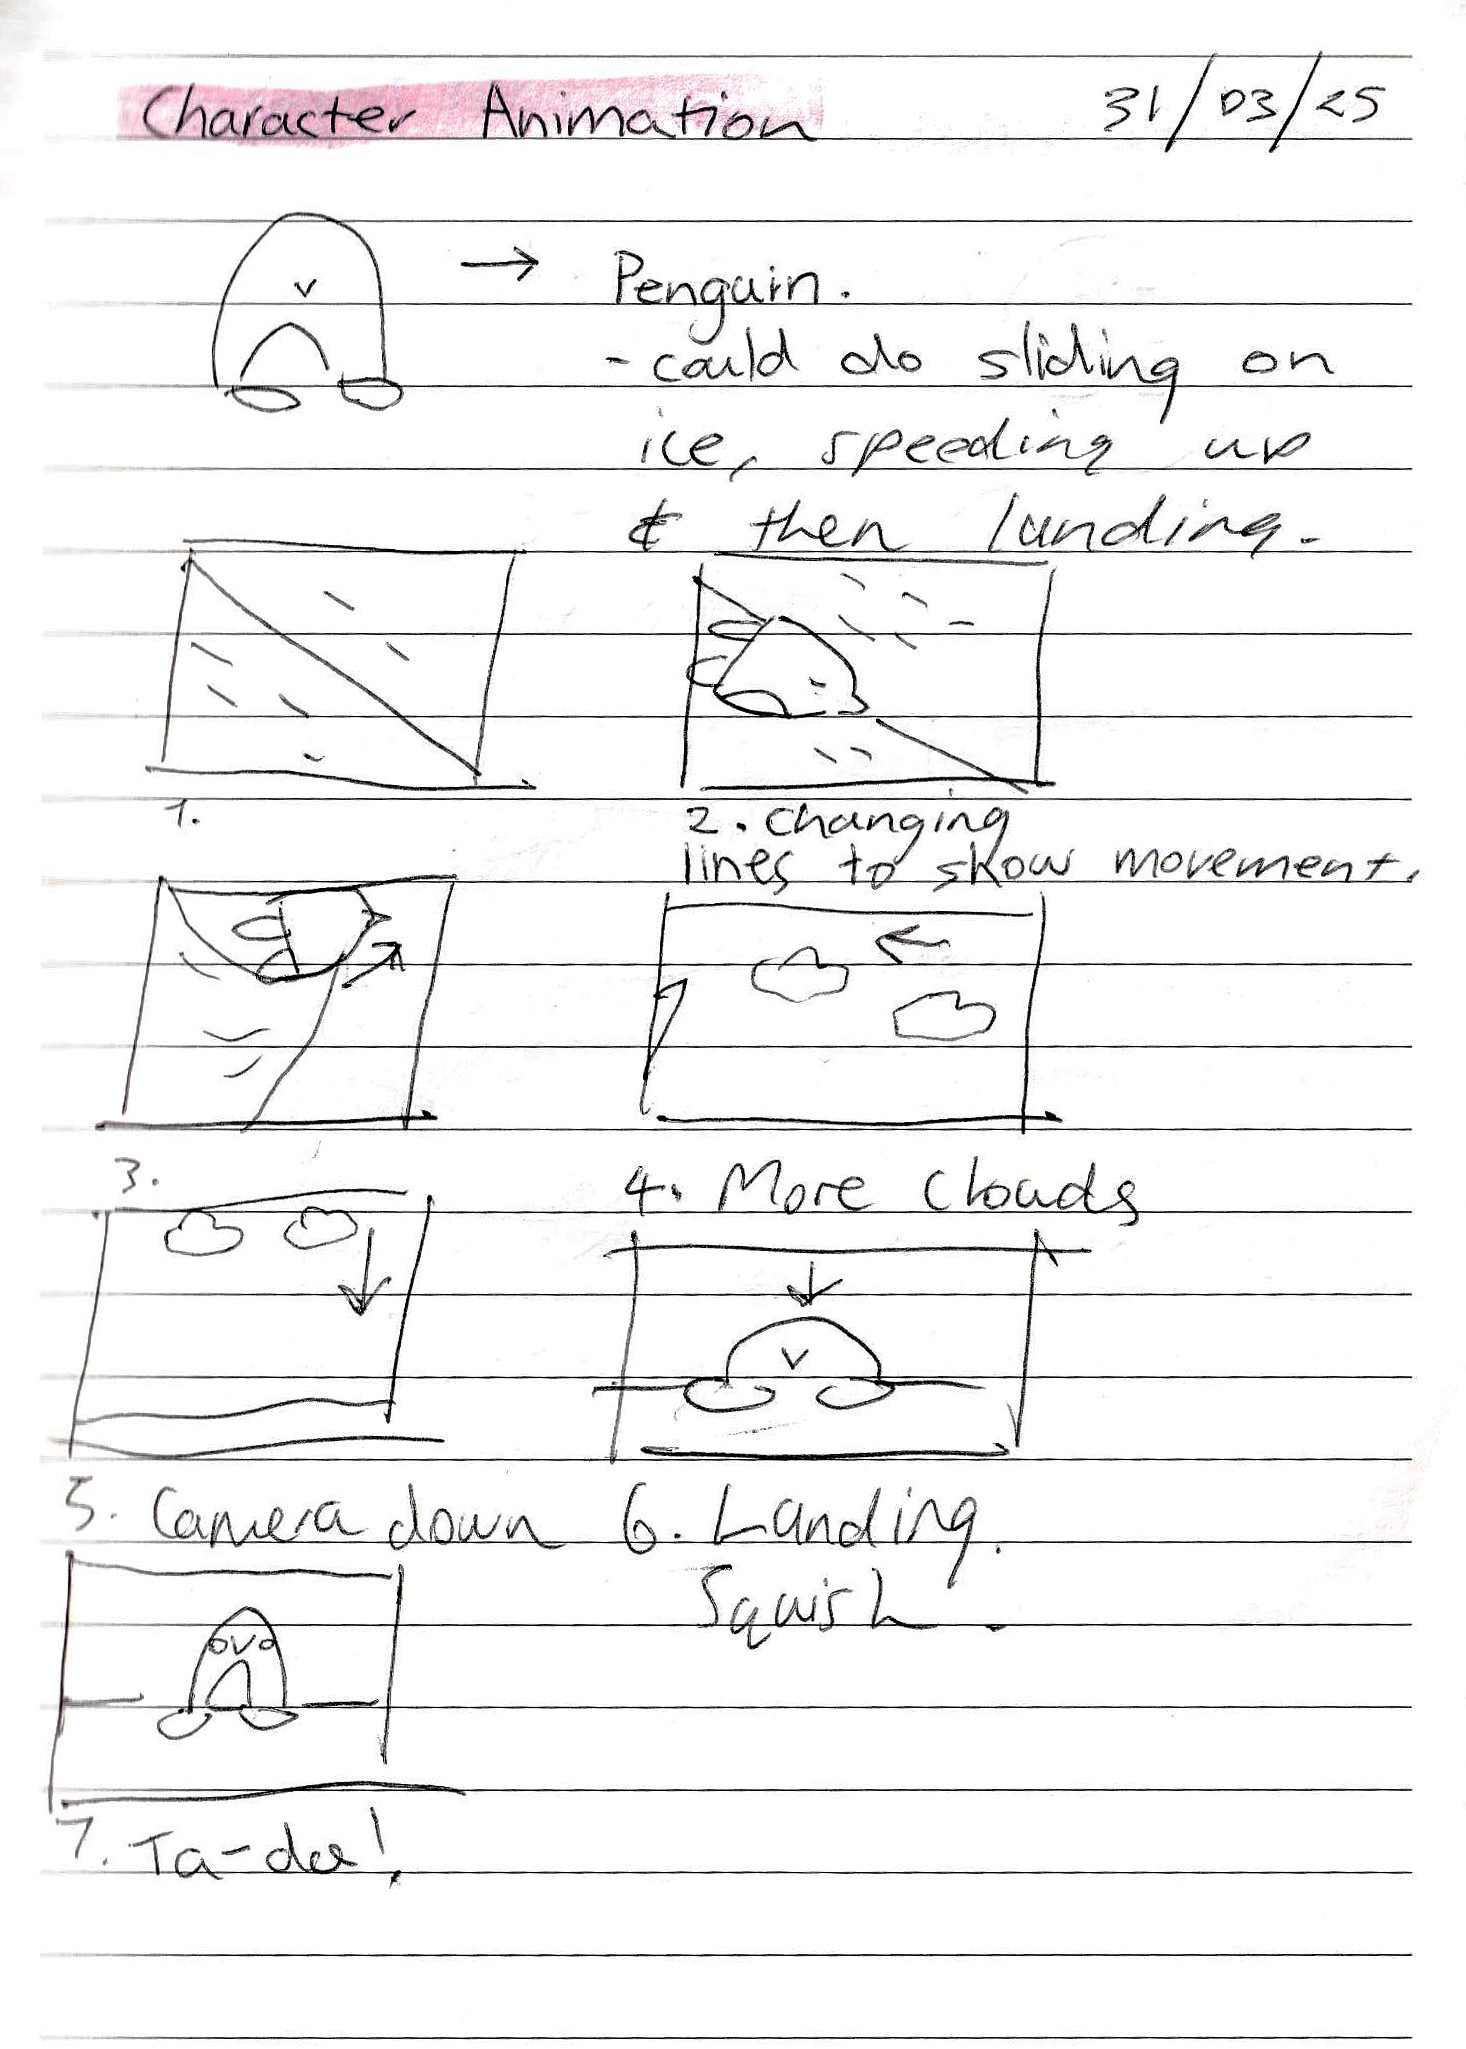 Character Animation 31/03/25
Penguin.
- could do sliding on
ice, speeding up
& then landing.
1.
2. changing
lines to show movement.
3.
4. More clouds
5. Camera down
6. Landing.
Squish.
7. Ta-da!